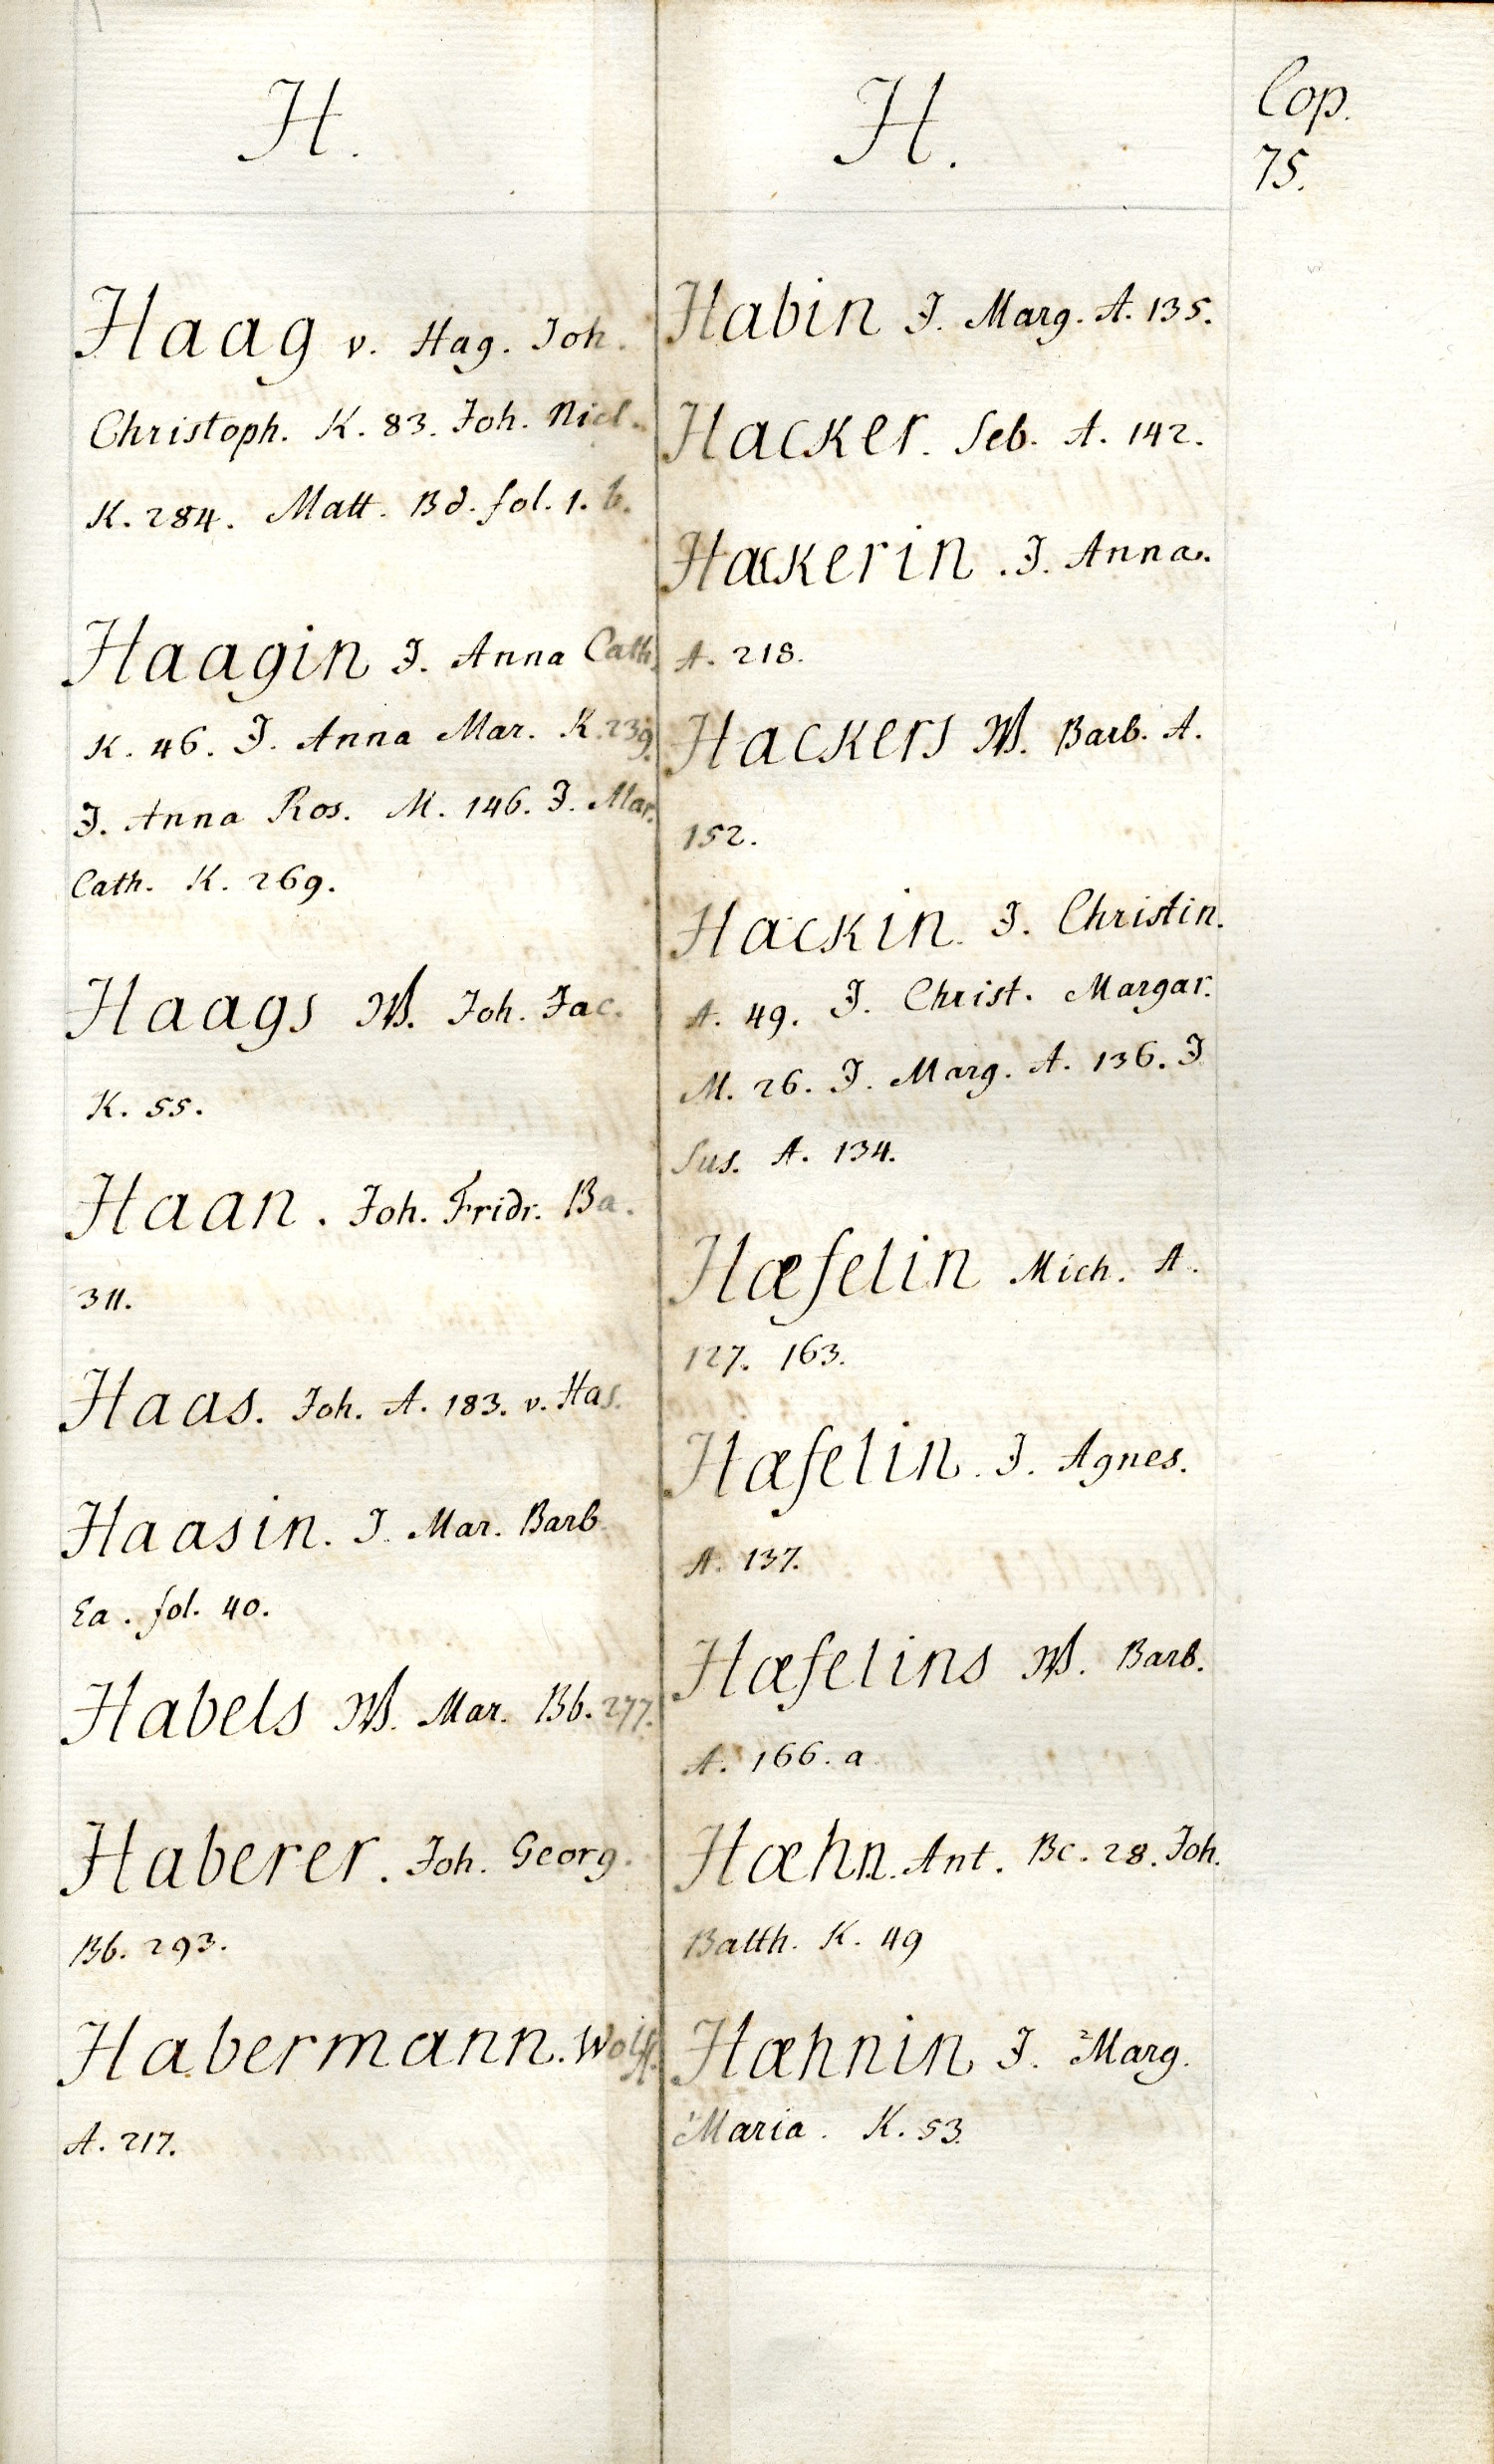 H.
Haag v. Hag. Joh.
Christoph. K. 83. Joh. Nicl.
K. 284. Matt. Bd. fol. 1. b.
Haagin J. Anna Cath.
K. 46. J. Anna Mar. K. 239.
J. Anna Ros. M. 146. J. Mar.
Cath. K. 269.
Haags W. Joh. Jac.
K. 55.
Haan. Joh. Fridr. Ba.
311.
Haas. Joh. A. 183. v. Has.
Haasin. J. Mar. Barb
Ea. fol. 40.
Habels W. Mar. Bb. 277.
Haberer. Joh. Georg.
Bb. 293.
Habermann. Wolff.
A. 217.
H.
Habin J. Marg. A. 135.
Hacker. Seb. A. 142.
Hackerin. J. Anna.
A. 218.
Hackers W. Barb. A.
152.
Hackin. J. Christin.
A. 49. J. Christ. Margar.
M. 26. J. Marg. A. 136. J
Sus. A. 134.
Hæfelin Mich. A.
127. 163.
Hæfelin. J. Agnes.
A. 137.
Hæfelins W. Barb.
A. 166. a
Hæhn. Ant. Bc. 28. Joh.
Balth. K. 49
Hæhnin J. ²Marg.
¹Maria. K. 53.
Cop.
75.